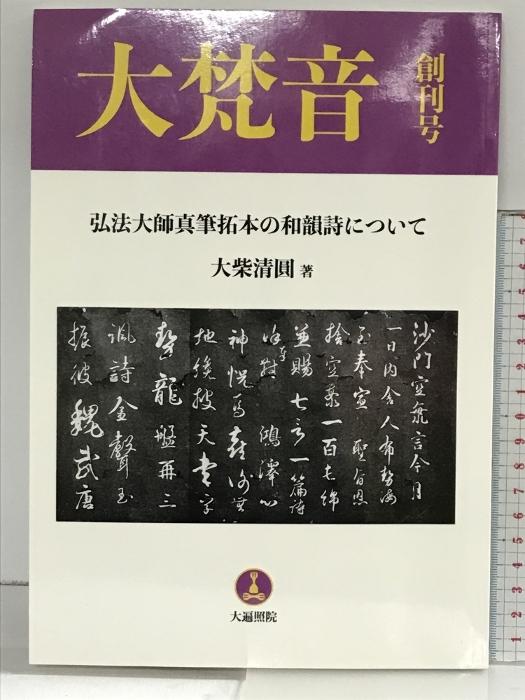 大梵音
創刊号
弘法大師真筆拓本の和韻詩について
大柴清圓 著
沙門空海言今月
一日内舍人布勢海
至奉宣 聖旨恩
捨空海一百屯綿
並賜七言一篇詩
鴻澤心
神怳焉
地後披天書字
勢龍盤再三
諷詩金聲玉
振彼魏武唐
大遍照院